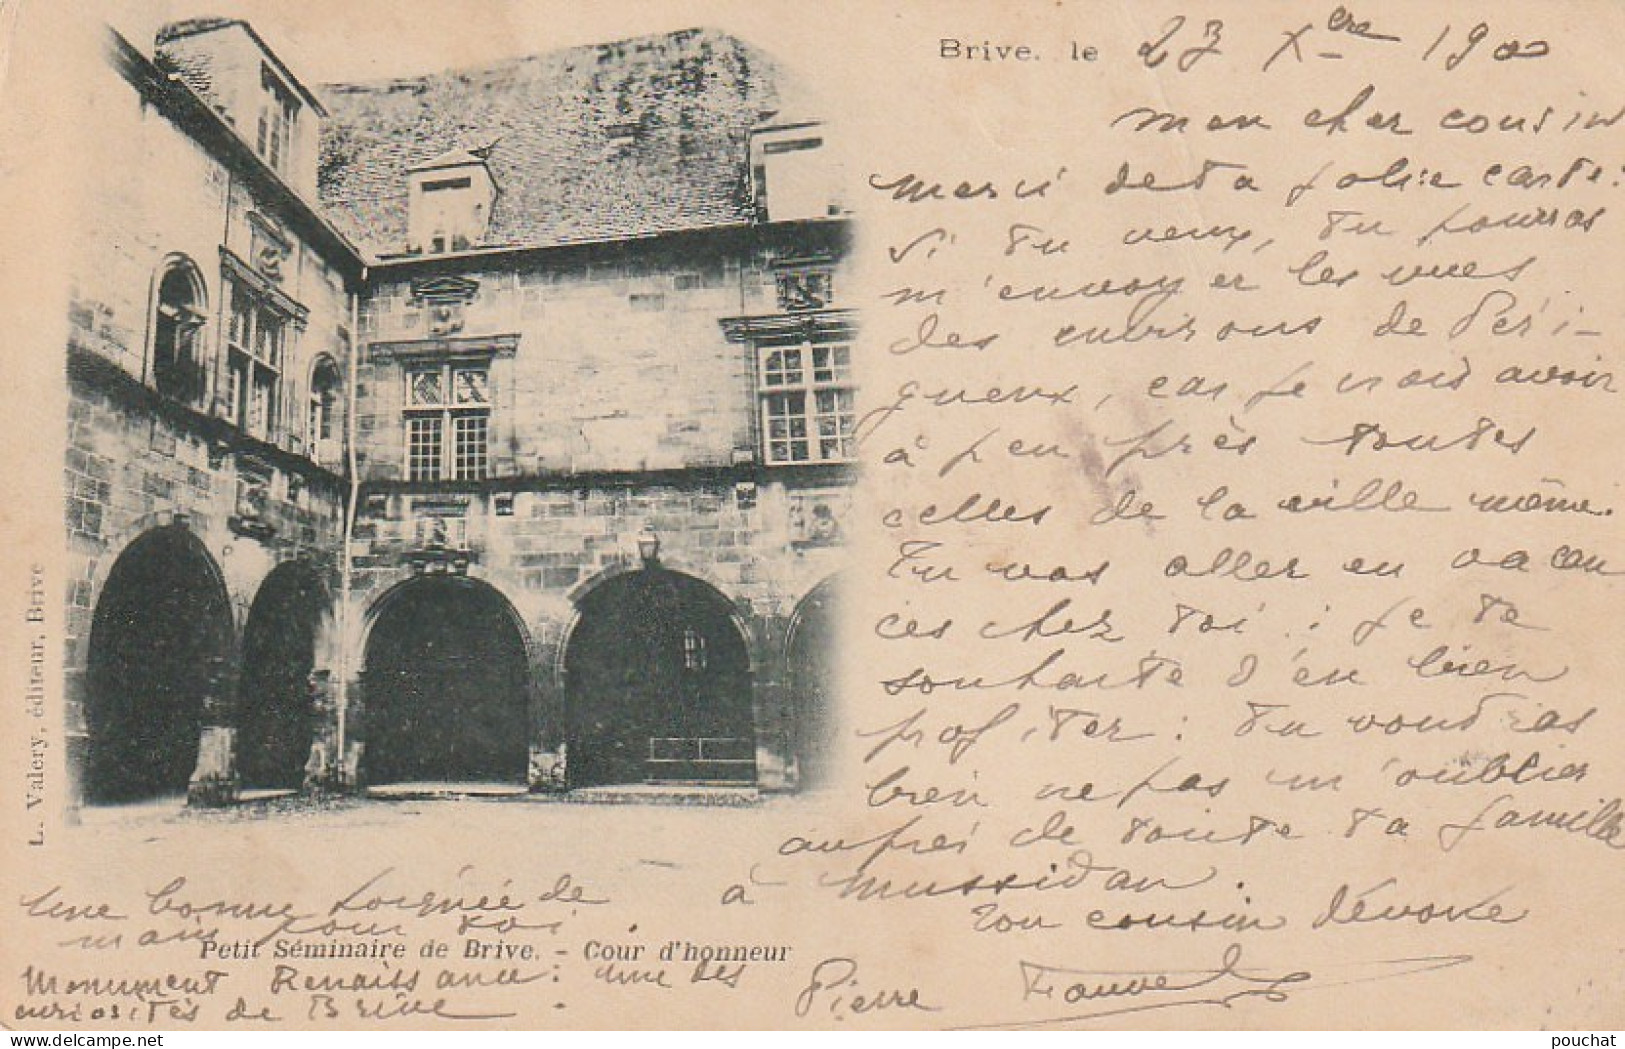 Brive, le 23 Xbre 1900
mon cher cousin
merci de ta jolie carte :
si tu veux, tu pourras
m'envoyer les vues
des environs de Péri-
gueux, car je crois avoir
à peu près toutes
celles de la ville même.
Tu vas aller en vacan
ces chez toi : je te
souhaite d'en bien
profiter : tu voudras
bien ne pas m'oublier
auprès de toute ta famille
à Mussidan.
Ton cousin dévoué
Pierre
Une bonne poignée de
main pour toi.
Petit Séminaire de Brive. - Cour d'honneur
Monument Renaissance : une des
curiosités de Brive.
L. Valery, éditeur, Brive
pouchat
delcampe.net